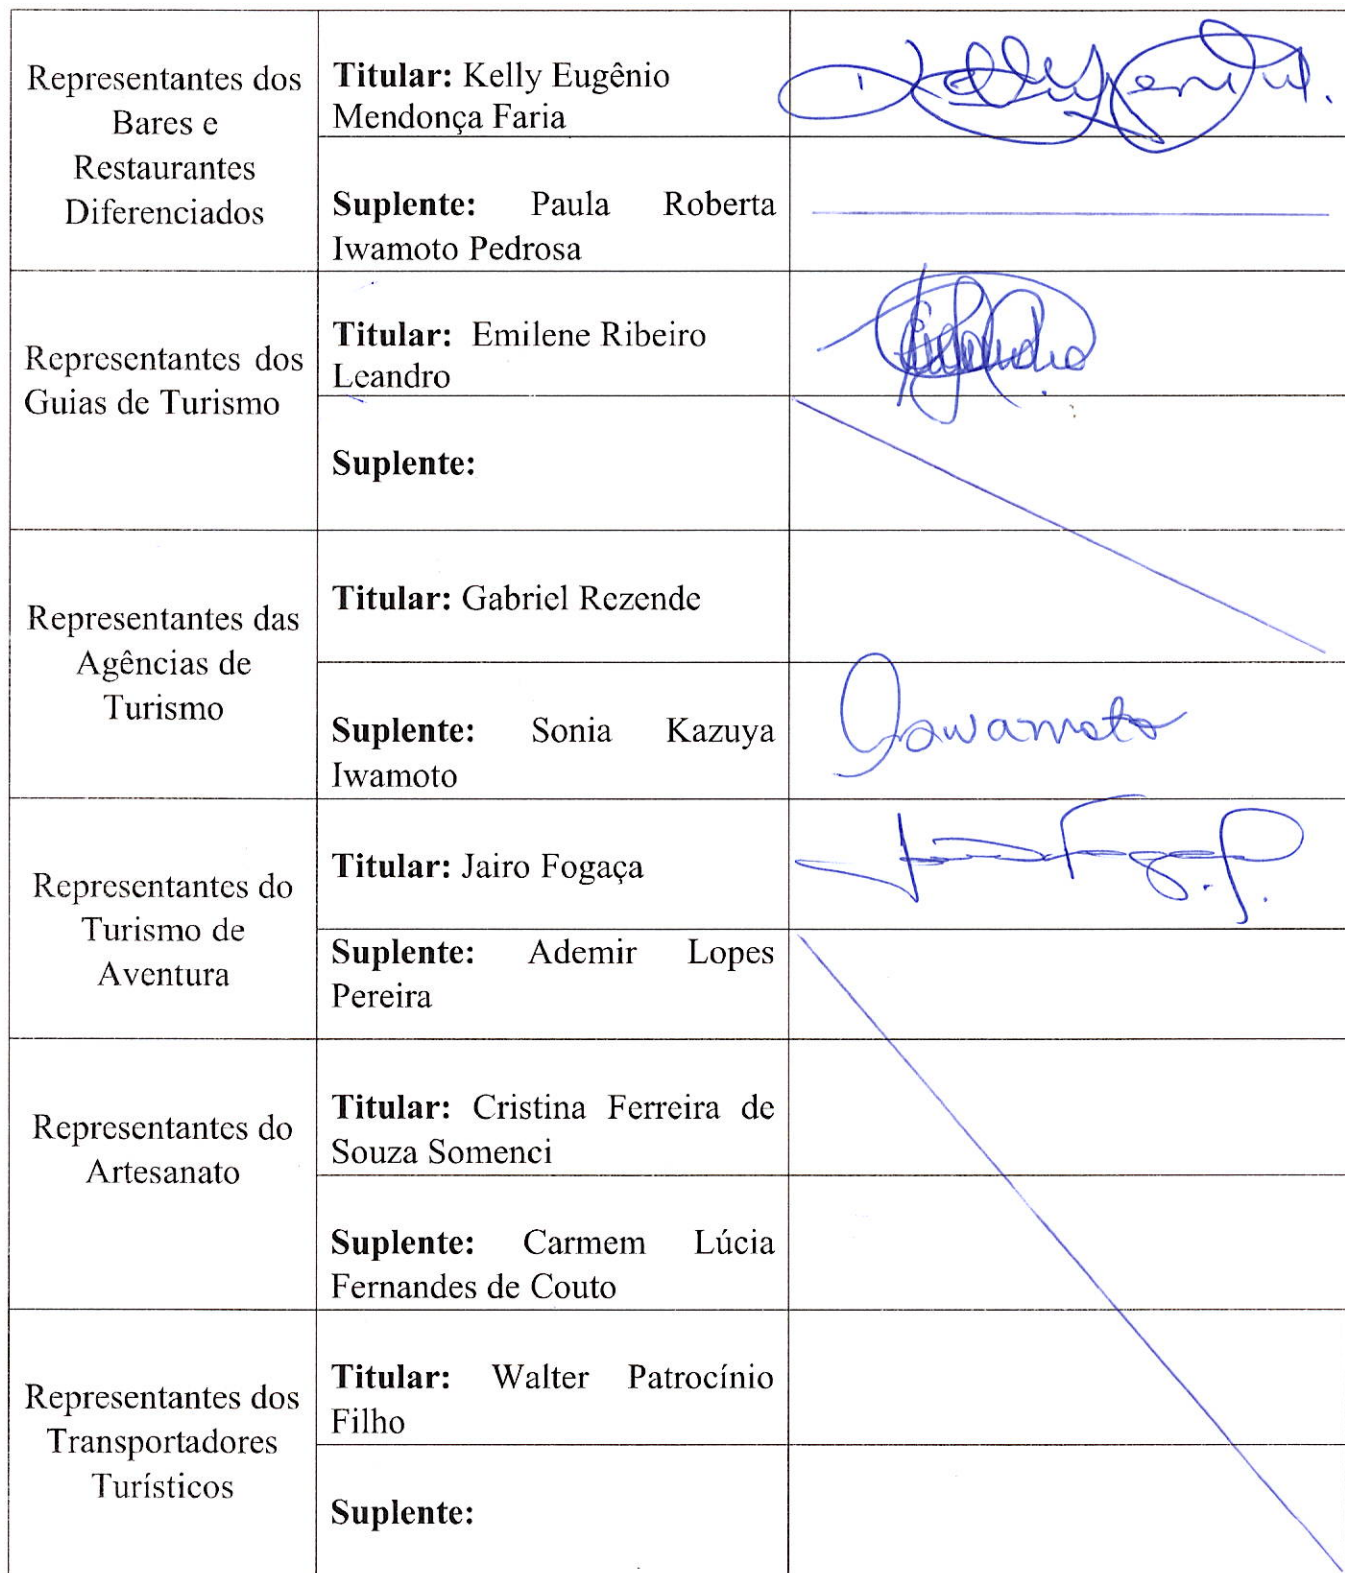 Representantes dos
Bares e
Restaurantes
Diferenciados
Titular: Kelly Eugênio
Mendonça Faria
Suplente: Paula Roberta
Iwamoto Pedrosa
Representantes dos
Guias de Turismo
Titular: Emilene Ribeiro
Leandro
Suplente:
Representantes das
Agências de
Turismo
Titular: Gabriel Rezende
Suplente: Sonia Kazuya
Iwamoto
Iwamoto
Representantes do
Turismo de
Aventura
Titular: Jairo Fogaça
Suplente: Ademir Lopes
Pereira
Representantes do
Artesanato
Titular: Cristina Ferreira de
Souza Somenci
Suplente: Carmem Lúcia
Fernandes de Couto
Representantes dos
Transportadores
Turísticos
Titular: Walter Patrocínio
Filho
Suplente: